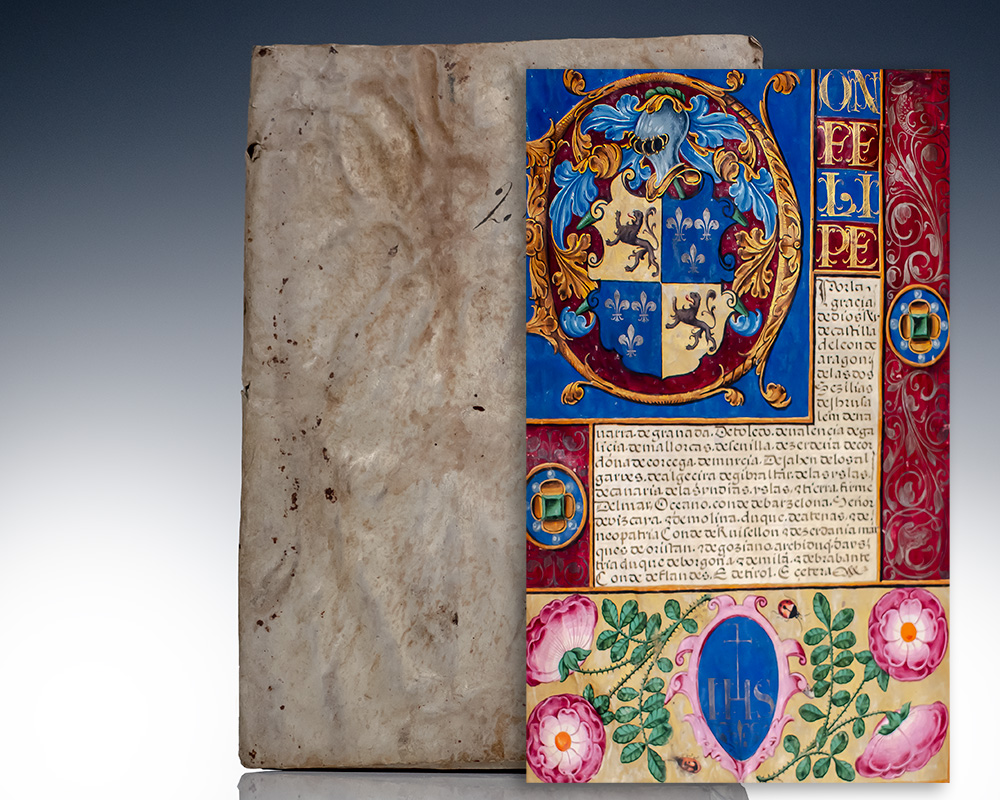 2
DON
FE
LI
PE
Porla
gracia
dedios Rey
decastilla
deleon de
aragon
delas dos
Sezilias
dejhrusa
lem dena
uarra. de grana da. Detoledo. deualencia de ga
licia. demallorcas. deseuilla. dezerdeña decor
doua de corcega. demurcia. Dejahen delosal
garues. dealgezira degibraltar. delas yslas.
decanaria delas yndias. yslas. ⁊ tierra. firme
Delmar Oceano. conde debarzelona. Señor
deuizcaya. ⁊ demolina. duque. deatenas. ⁊ de
neopatria Conde de Ruisellon. ⁊ dezerdania mar
ques de oristan. ⁊ de goziano. archiduq̃. daust
tria duque deborgoña. ⁊ demilã. ⁊ debrabante
Conde deflandes. E detirol. E cetera
IHS